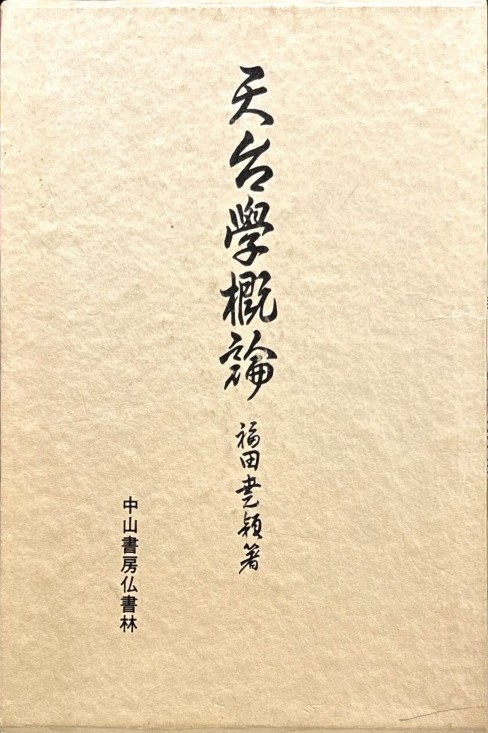 天台學概論
福田堯頴著
中山書房仏書林